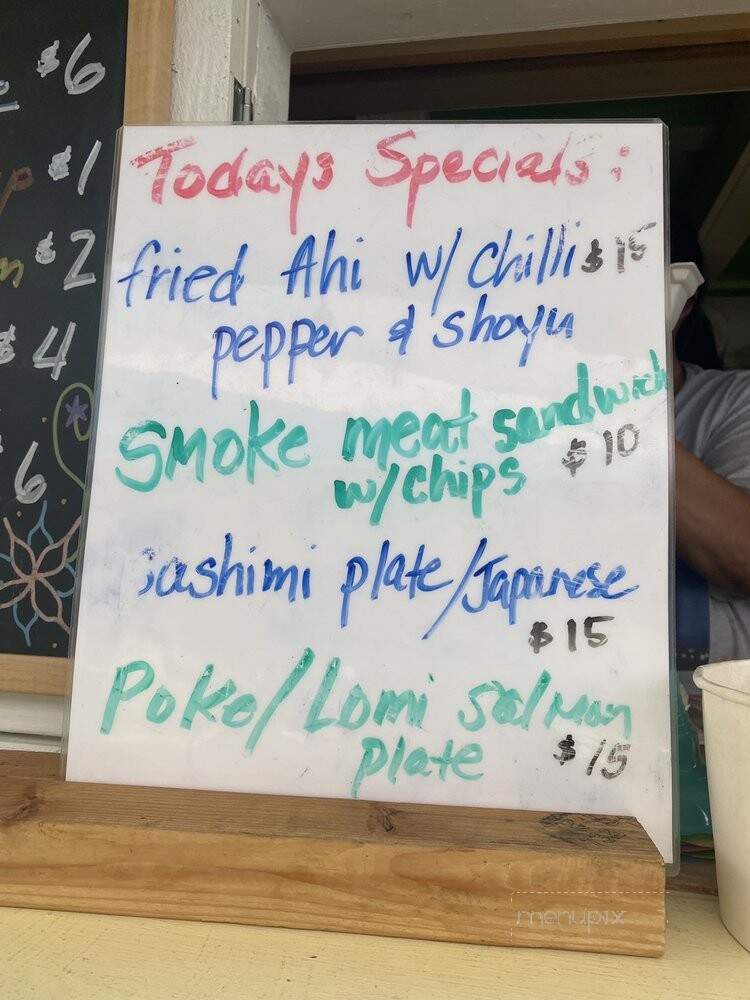 $6
$1
$2
$4
6
Todays Specials:
fried Ahi w/ chilli $15
pepper & shoyu
Smoke meat sandwich
w/chips $10
sashimi plate/Japanese
$15
Poke/Lomi salmon
plate $15
menupix